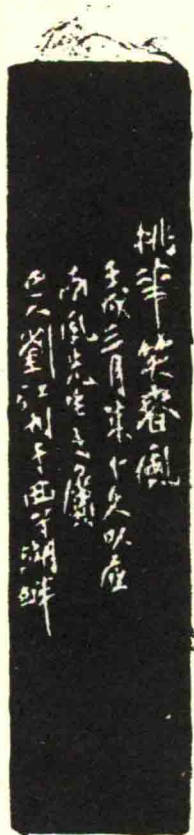 桃華笑春風
壬戌三月集十久以應
南風先生之屬
巴人劉江刊于西子湖畔